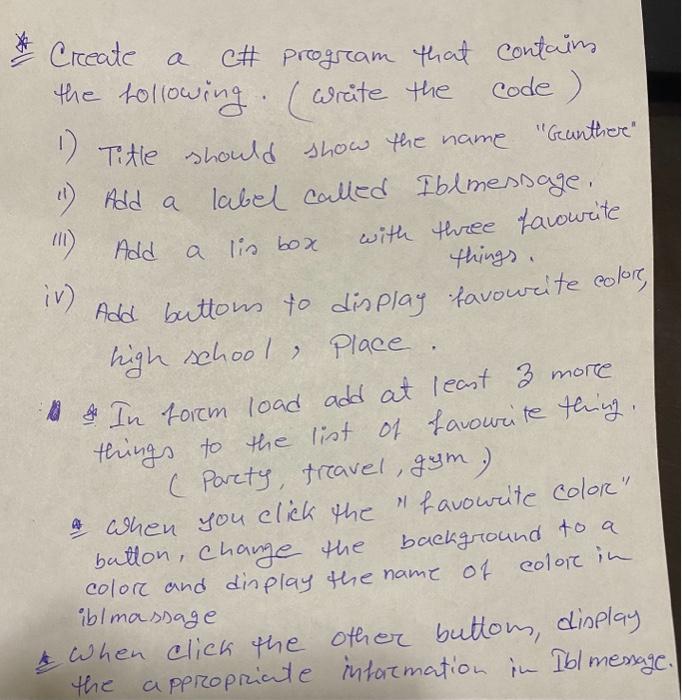 * Create a C# program that contains
the following. (write the code)
i) Title should show the name "Gunther"
ii) Add a label called Iblmessage.
iii) Add a lis box with three favourite
things.
iv) Add buttons to display favourite color,
high school, Place.
* In form load add at least 3 more
things to the list of favourite thing.
(Party, travel, gym)
* When you click the "favourite color"
button, change the background to a
color and display the name of color in
iblmassage
* When click the other button, display
the appropriate information in Iblmessage.